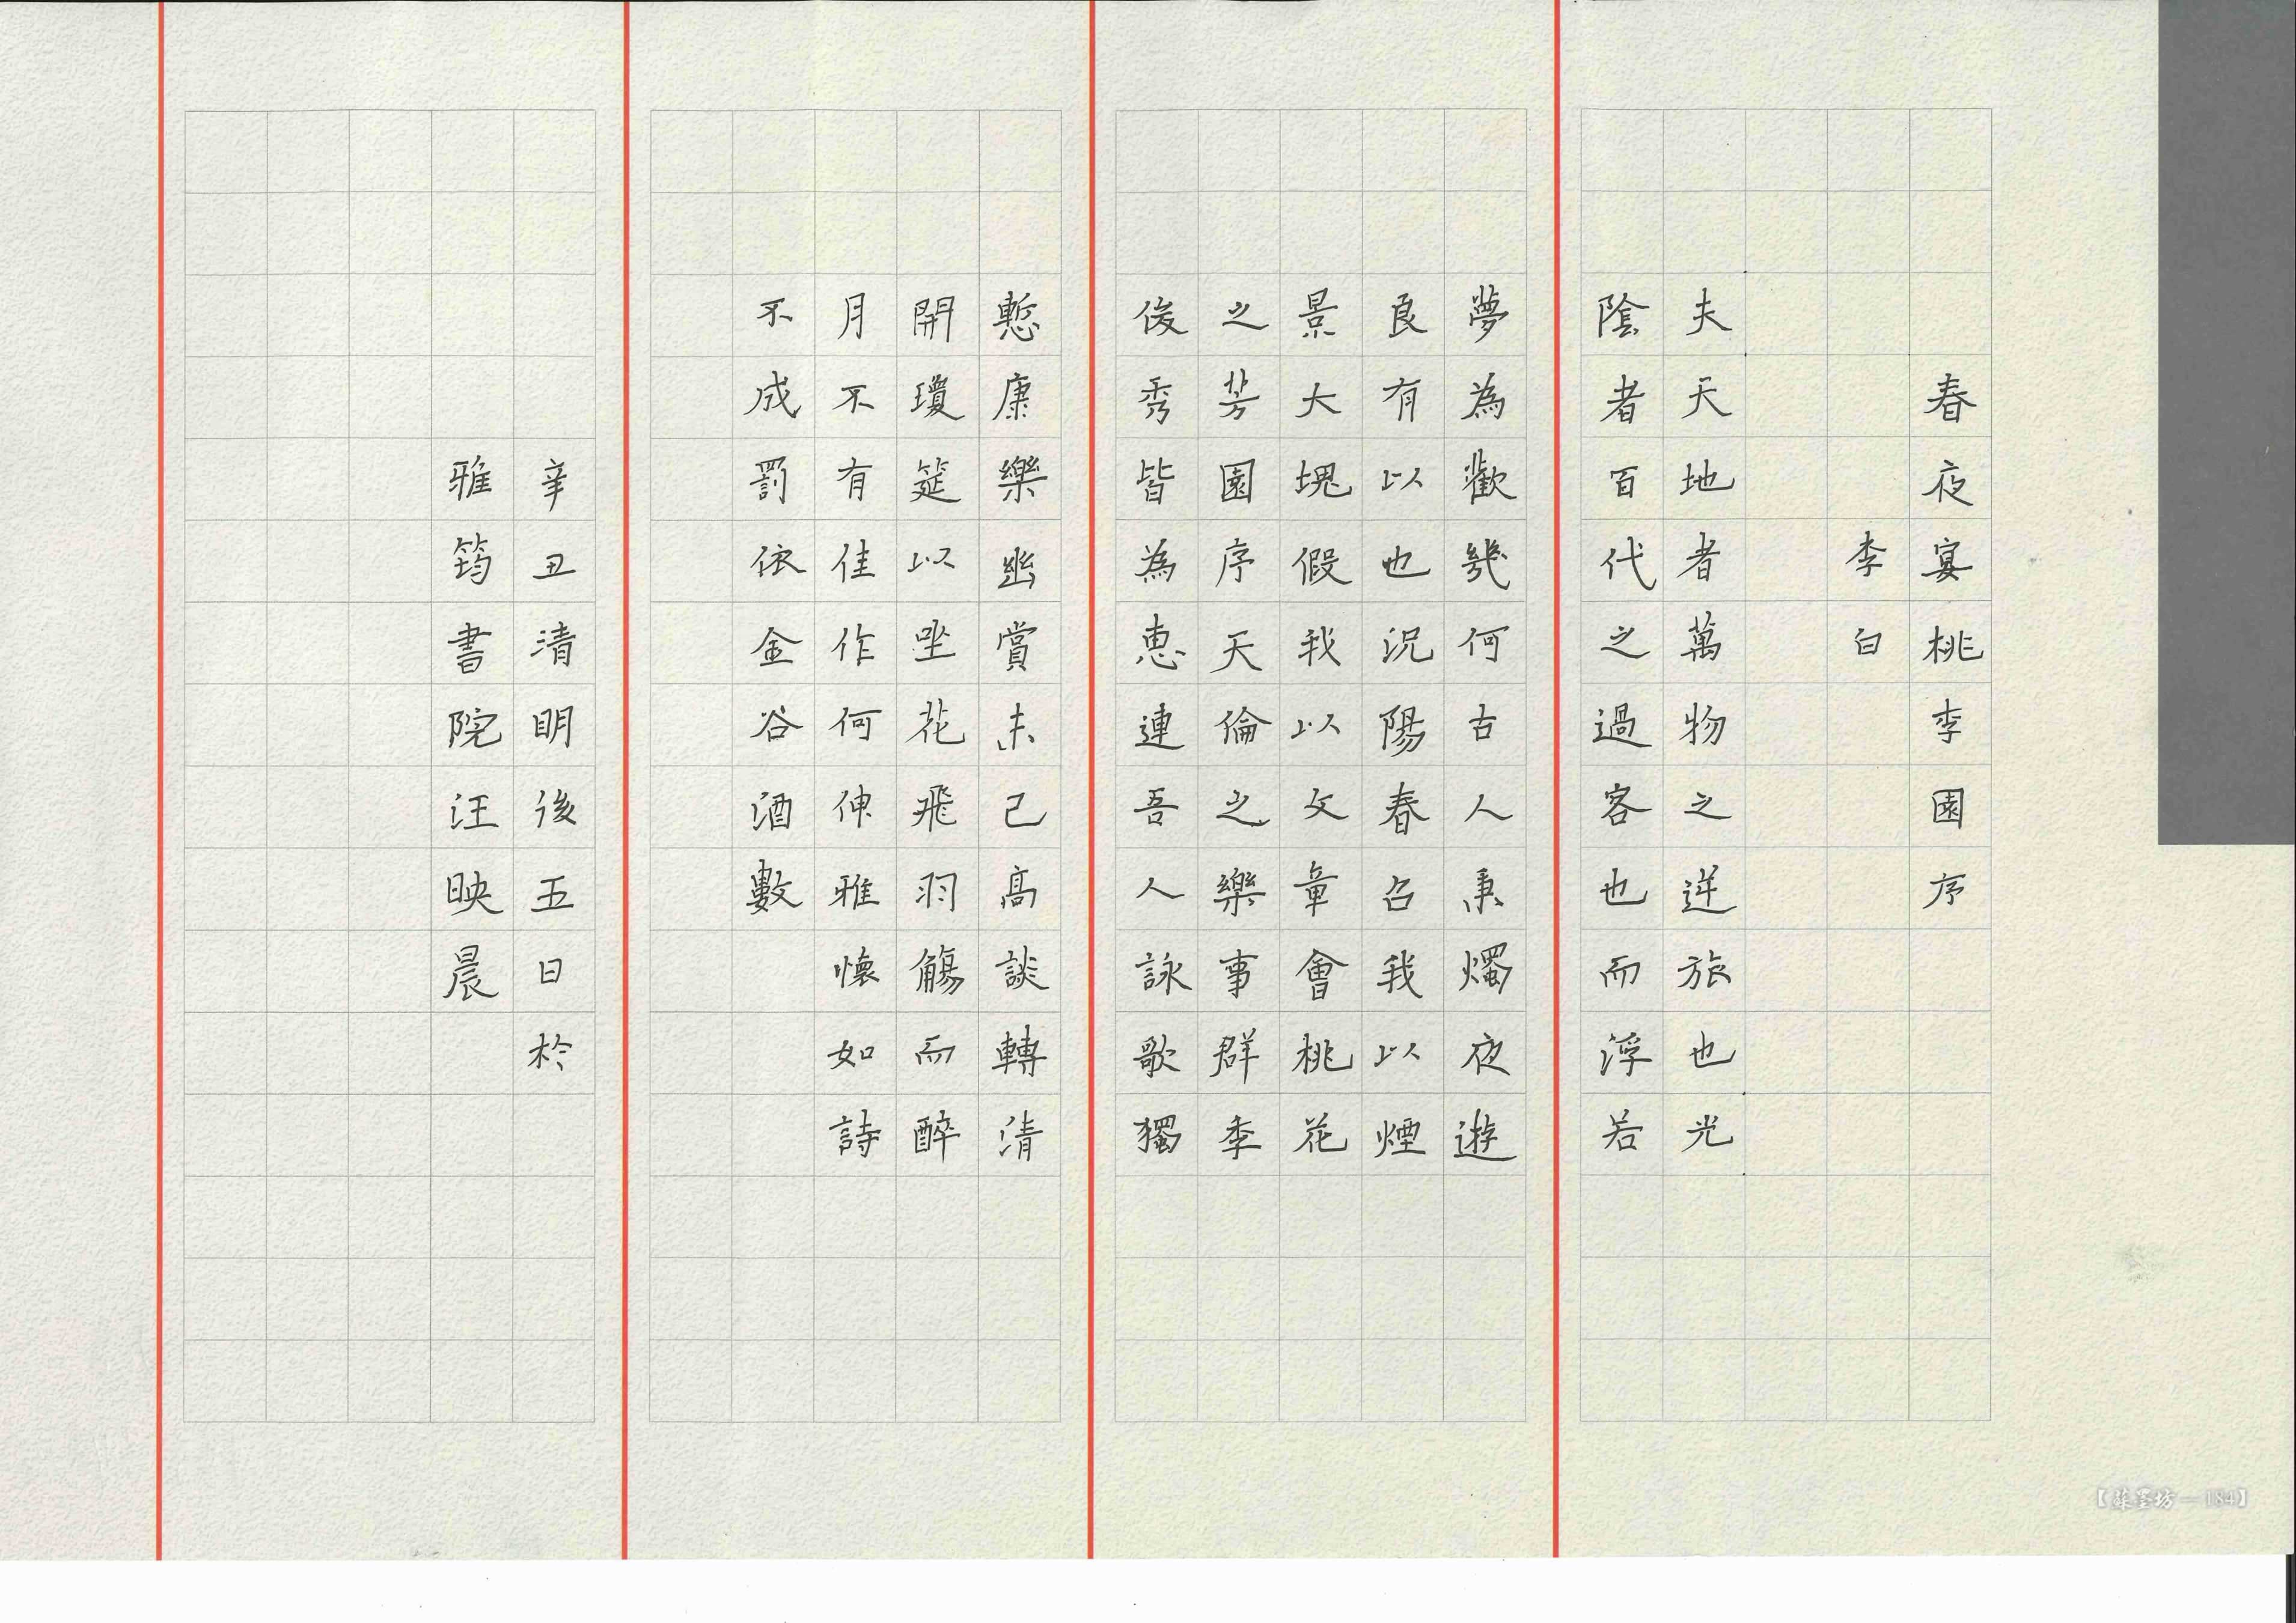 春夜宴桃李園序
李白
夫天地者萬物之逆旅也光
陰者百代之過客也而浮若
夢為歡幾何古人秉燭夜遊
良有以也況陽春召我以煙
景大塊假我以文章會桃花
之芳園序天倫之樂事群季
俊秀皆為惠連吾人詠歌獨
慙康樂幽賞未已高談轉清
開瓊筵以坐花飛羽觴而醉
月不有佳作何伸雅懷如詩
不成罰依金谷酒數
辛丑清明後五日於
雅筠書院汪映晨
【蘇墨坊—184】